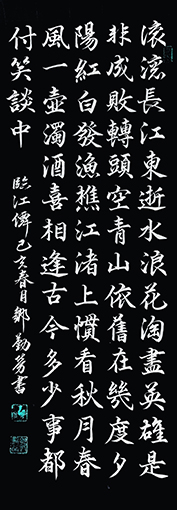 滾滾長江東逝水浪花淘盡英雄是
非成敗轉頭空青山依舊在幾度夕
陽紅白發漁樵江渚上慣看秋月春
風一壺濁酒喜相逢古今多少事都
付笑談中
臨江僊己亥春月鄭勤芳書